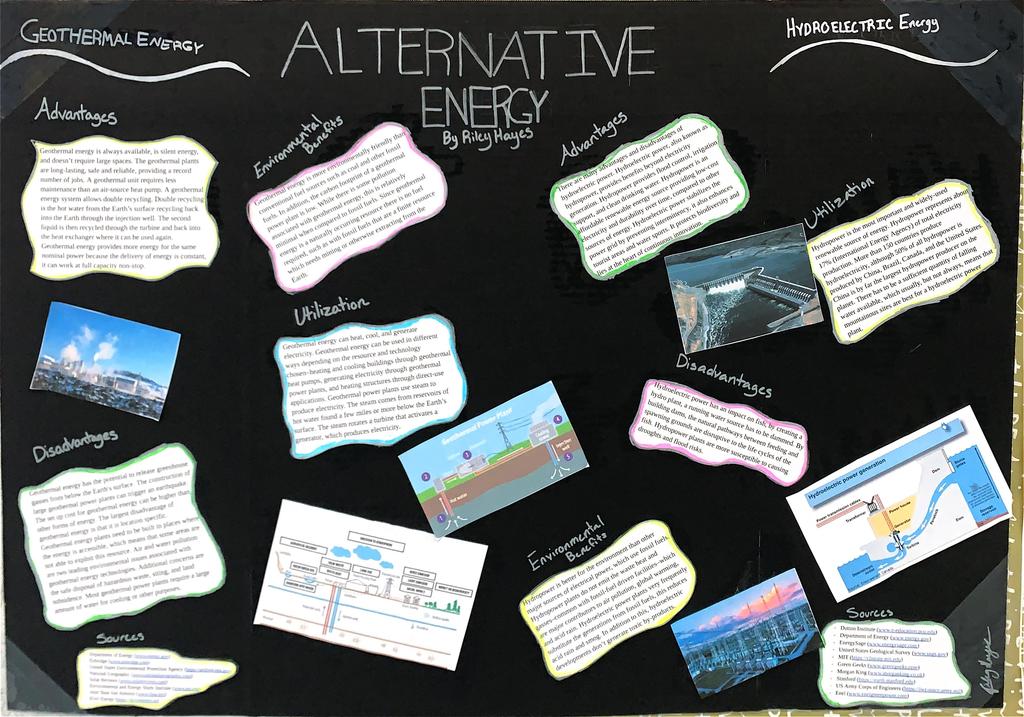 GEOTHERMAL ENERGY
ALTERNATIVE
ENERGY
By Riley Hayes
HYDROELECTRIC Energy
Advantages
Geothermal energy is always available, is silent energy,
and doesn't require large spaces. The geothermal plants
are long-lasting, safe and reliable, providing a record
number of jobs. A geothermal unit requires less
maintenance than an air-source heat pump. A geothermal
energy system allows double recycling. Double recycling
is the hot water from the Earth's surface recycling back
into the Earth through the injection well. The second
liquid is then recycled through the turbine and back into
the heat exchanger where it can be used again.
Geothermal energy provides more energy for the same
nominal power because the delivery of energy is constant,
it can work at full capacity non-stop.
Environmental
Benefits
Geothermal energy is more environmentally friendly than
conventional fuel sources such as coal and other fossil
fuels. In addition, the carbon footprint of a geothermal
power plant is low. While there is some pollution
associated with geothermal energy, this is relatively
minimal when compared to fossil fuels. Since geothermal
energy is a naturally occurring resource there is no fuel
required, such as with fossil fuels that are a finite resource
which needs mining or otherwise extracting from the
Earth.
Utilization
Geothermal energy can heat, cool, and generate
electricity. Geothermal energy can be used in different
ways depending on the resource and technology
chosen-heating and cooling buildings through geothermal
heat pumps, generating electricity through geothermal
power plants, and heating structures through direct-use
applications. Geothermal power plants use steam to
produce electricity. The steam comes from reservoirs of
hot water found a few miles or more below the Earth's
surface. The steam rotates a turbine that activates a
generator, which produces electricity.
Disadvantages
Geothermal energy has the potential to release greenhouse
gases from below the Earth's surface. The construction of
large geothermal power plants can trigger an earthquake
The set up cost for geothermal energy can be higher than
other forms of energy. The largest disadvantage of
geothermal energy is that it is location specific.
Geothermal energy plants need to be built in places where
the energy is accessible, which means that some areas are
not able to exploit this resource. Air and water pollution
are two leading environmental issues associated with
geothermal energy technologies. Additional concerns are
the safe disposal of hazardous waste, siting, and land
subsidence. Most geothermal power plants require a large
amount of water for cooling or other purposes.
Geothermal Power Plant
Hot water
Injection
well
Sources
Advantages
There are many advantages and disadvantages of
hydroelectric power. Hydroelectric power, also known as
hydropower, provides benefits beyond electricity
generation. Hydropower provides flood control, irrigation
support, and clean drinking water. Hydropower is an
affordable renewable energy source providing low-cost
electricity and durability over time compared to other
sources of energy. Hydroelectric power stabilizes the
power grid by promoting flexibility, it also enhances
tourist areas and water sports. It protects biodiversity and
lies at the heart of continuous innovation.
Utilization
Hydropower is the most important and widely-used
renewable source of energy. Hydropower represents about
17% (International Energy Agency) of total electricity
production. More than 150 countries produce
hydroelectricity, although 50% of all hydropower is
produced by China, Brazil, Canada, and the United States.
China is by far the largest hydropower producer on the
planet. There has to be a sufficient quantity of falling
water available, which usually, but not always, means that
mountainous sites are best for a hydroelectric power
plant.
Disadvantages
Hydroelectric power has an impact on fish; by creating a
hydro plant, a running water source has to be dammed. By
building dams, the natural pathways between feeding and
spawning grounds are disruptive to the life cycles of the
fish. Hydropower plants are more susceptible to causing
droughts and flood risks.
Hydroelectric power generation
Power transmission cables
Transformer
Power house
Generator
Turbine
Dam
Sluice
gates
Environmental
Benefits
Hydropower is better for the environment than other
major sources of electrical power, which use fossil fuels.
Hydropower plants do not emit the waste heat and
gases-common with fossil-fuel driven facilities-which
are major contributors to air pollution, global warming,
and acid rain. Hydroelectric power plants very frequently
substitute the generations from fossil fuels, this reduces
acid rain and smog. In addition to this, hydroelectric
developments don't generate toxic by-products.
Sources
Dutton Institute (www.e-education.psu.edu)
Department of Energy (www.energy.gov)
EnergySage (www.energysage.com)
United States Geological Survey (www.usgs.gov)
MIT (https://climate.mit.edu)
Green Geeks (www.greengeeks.com)
Morgan King (www.morganking.co)
Stanford (https://earth.stanford.edu)